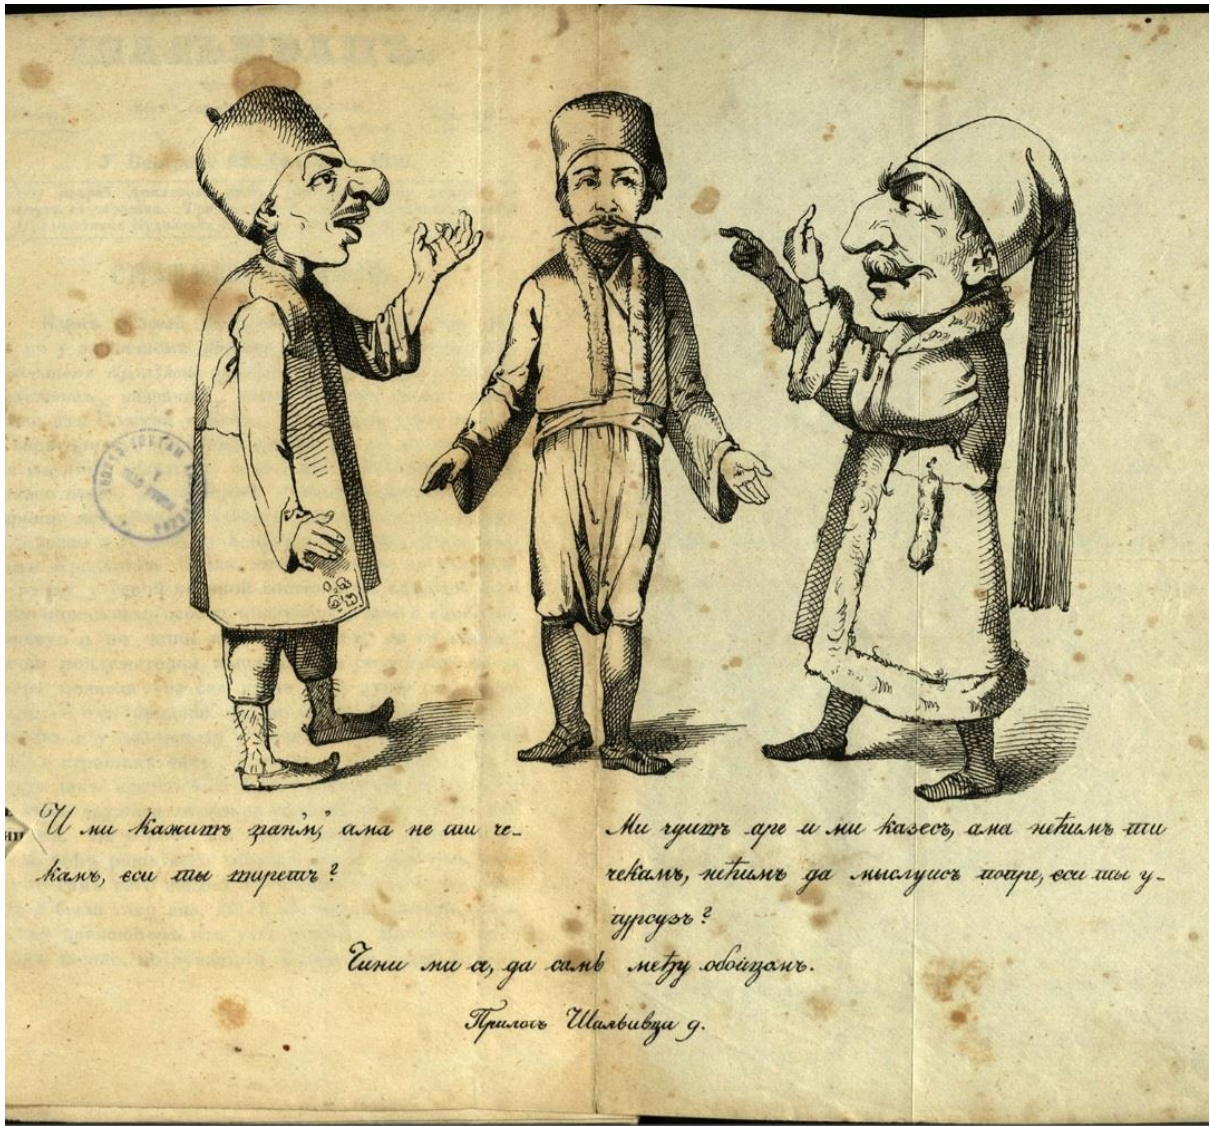 И ми кажитъ зган'м; ама не ти че-
камъ, еси ты тиретъ?
Ми чуитъ аре и ми казесъ, ама нећимъ ти
чекамъ, нећимъ да мыслуисъ попре, еси ты у-
гурсузъ?
Чини ми се, да самь међу обоицомъ.
Прилогъ Шальивца 9.